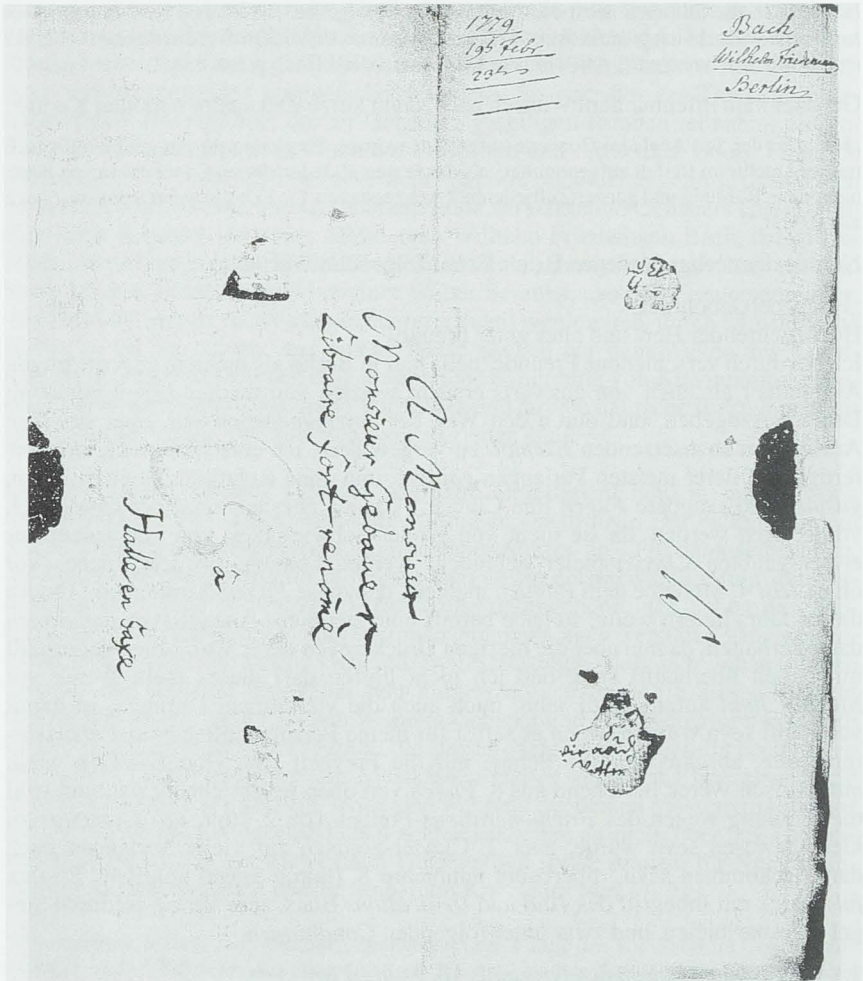 1779
19t Febr
23ts
Bach
Wilhelm Friedemann
Berlin
A Monsieur
Monsieur Gebauer
Libraire fort renomé
à
Halle en Saxe